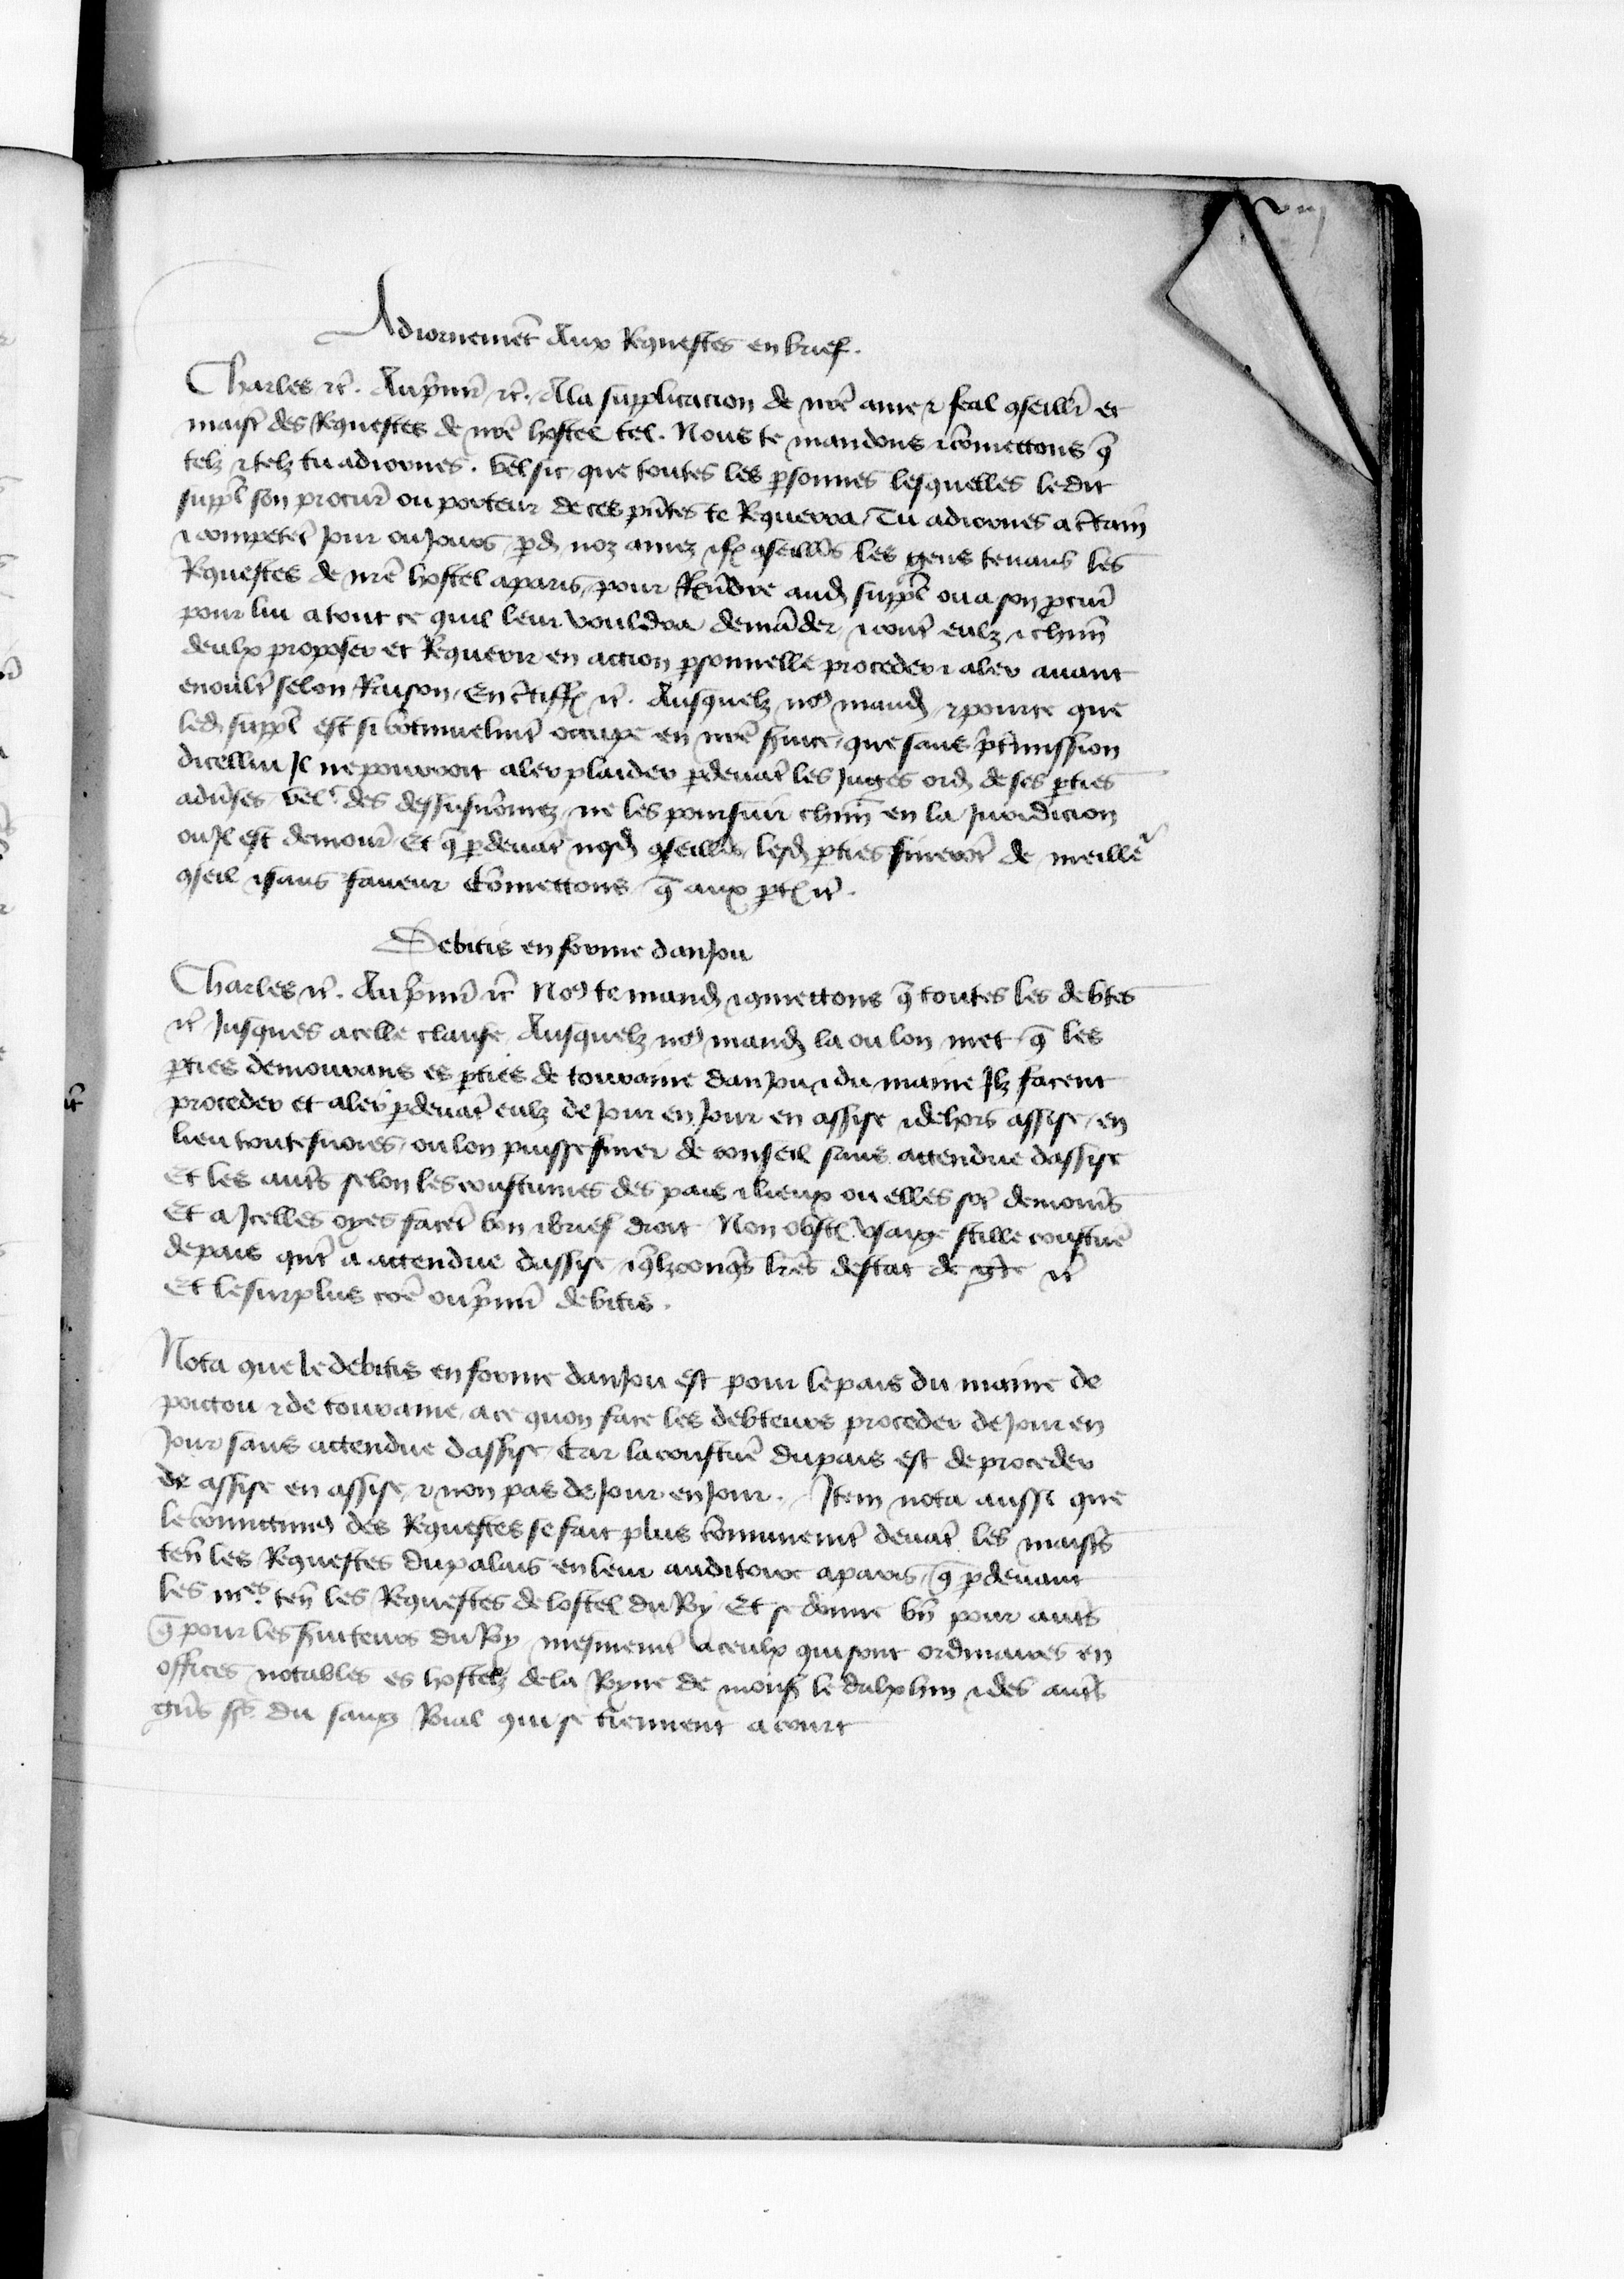 viij
Adiornemẽt Aux Requestes en brief.
Charles ⁊c̃. Au p̃mr̃ ⁊c̃. A la supplicacion de nr̃e ame ⁊ feal ꝯseillr̃ et
maistr̃ des Requestes de nr̃e hostel tel. Nous te mandons ⁊ cõmettons q̃
telz ⁊ telz tu adiornes. vel sic que toutes les ꝑsonnes lesquelles ledit
suppl̃ son procur̃ ou porteur de ces pñtes te Requerra, Tu adiornes a c̃tain
⁊ competẽt Jour ou Jours ꝑd̃ noz amez ⁊ f̃x ꝯseill̃rs les gens tenans les
Requestes de nr̃e hostel a paris, pour Respõdre aud̃ suppl̃ ou a son ꝓcur̃
pour lui a tout ce quil leur vouldra demãder, ⁊ contr̃ eulz ⁊ chũn
deulx proposer et Requerir en action ꝑsonnelle proceder ⁊ aler auant
en oultr̃ selon Raison, En c̃tiffx̃ ⁊c̃. Ausquelz noꝰ mand̃ ⁊ pource que
led̃ suppl̃ est si cõtinuelmẽt occupe en nr̃e ƒuice, que sans ꝑmission
dicellui Jl ne pourroit aler plaider ꝑdeuãt les Juges ord̃ de ses ꝑties
adũses, vel c̃ des dessusnõmez, ne les poursuir chũn en la Juridicion
ou Jl est demour̃ Et q̃ ꝑdeuãt nosd̃ ꝯseill̃rs, lesd̃ ꝑties finerõt de meilleʳ
ꝯseil ⁊ sans faueur Cõmettons, q̃ aux ꝑt̃x ⁊c̃.
Debitis en forme danJou
Charles ⁊c̃. Au p̃mr̃ ⁊c̃ Noꝰ te mand̃ ⁊ ꝯmettons q̃ toutes les debtes
⁊c̃ Jusques a celle clause Ausquelz noꝰ mand̃ la ou lon met q̃ les
ꝑties demourans es ꝑties de touraine danJou ⁊ du maine Jlz facent
proceder et aler ꝑdeuãt eulz de Jour en Jour en assise ⁊ dehors assise, en
lieu toutesuoies, ou lon puisse finer de conseil sans attendue dassise
Et les autr̃s selon les coustumes des pais ⁊ lieux ou elles sõt demourãs
Et a Jcelles oyes facẽt bon ⁊ brief droit Non obst̃ vsaige stille coustũe
de pais quãt a attendue dassise ⁊ q̃lzconq̃s lr̃es destat de gr̃e ⁊c̃
Et le surplus cõe ou p̃mr̃ debitis.
Nota que le debitis en forme danJou est pour le pais du maine de
poictou ⁊ de touraine, a ce quon face les debteurs proceder de Jour en
Jour sans attendue dassise, Car la coustũe du pais est de proceder
de assise en assise, ⁊ non pas de Jour en Jour. Jtem nota aussi que
le cõmittimꝰ des Requestes se fait plus cõmunemẽt deuãt les maistr̃s
teñ les Requestes du palais en leur auditoire a paris, q̃ ꝑdeuant
les mes̃ teñ les Requestes de lostel du Roy Et se donne bñ pour autr̃s
q̃ pour les ƒuiteurs du Roy mesmemẽt a ceulx qui sont ordinaires en
offices notables es hostelz de la Royne de mons̃ le dalphin ⁊ des autr̃s
gñs sgr̃s du sang Roial qui se tiennent a court